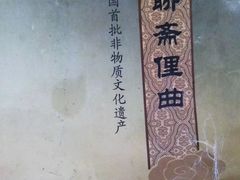 聊斋俚曲
国首批非物质文化遗产